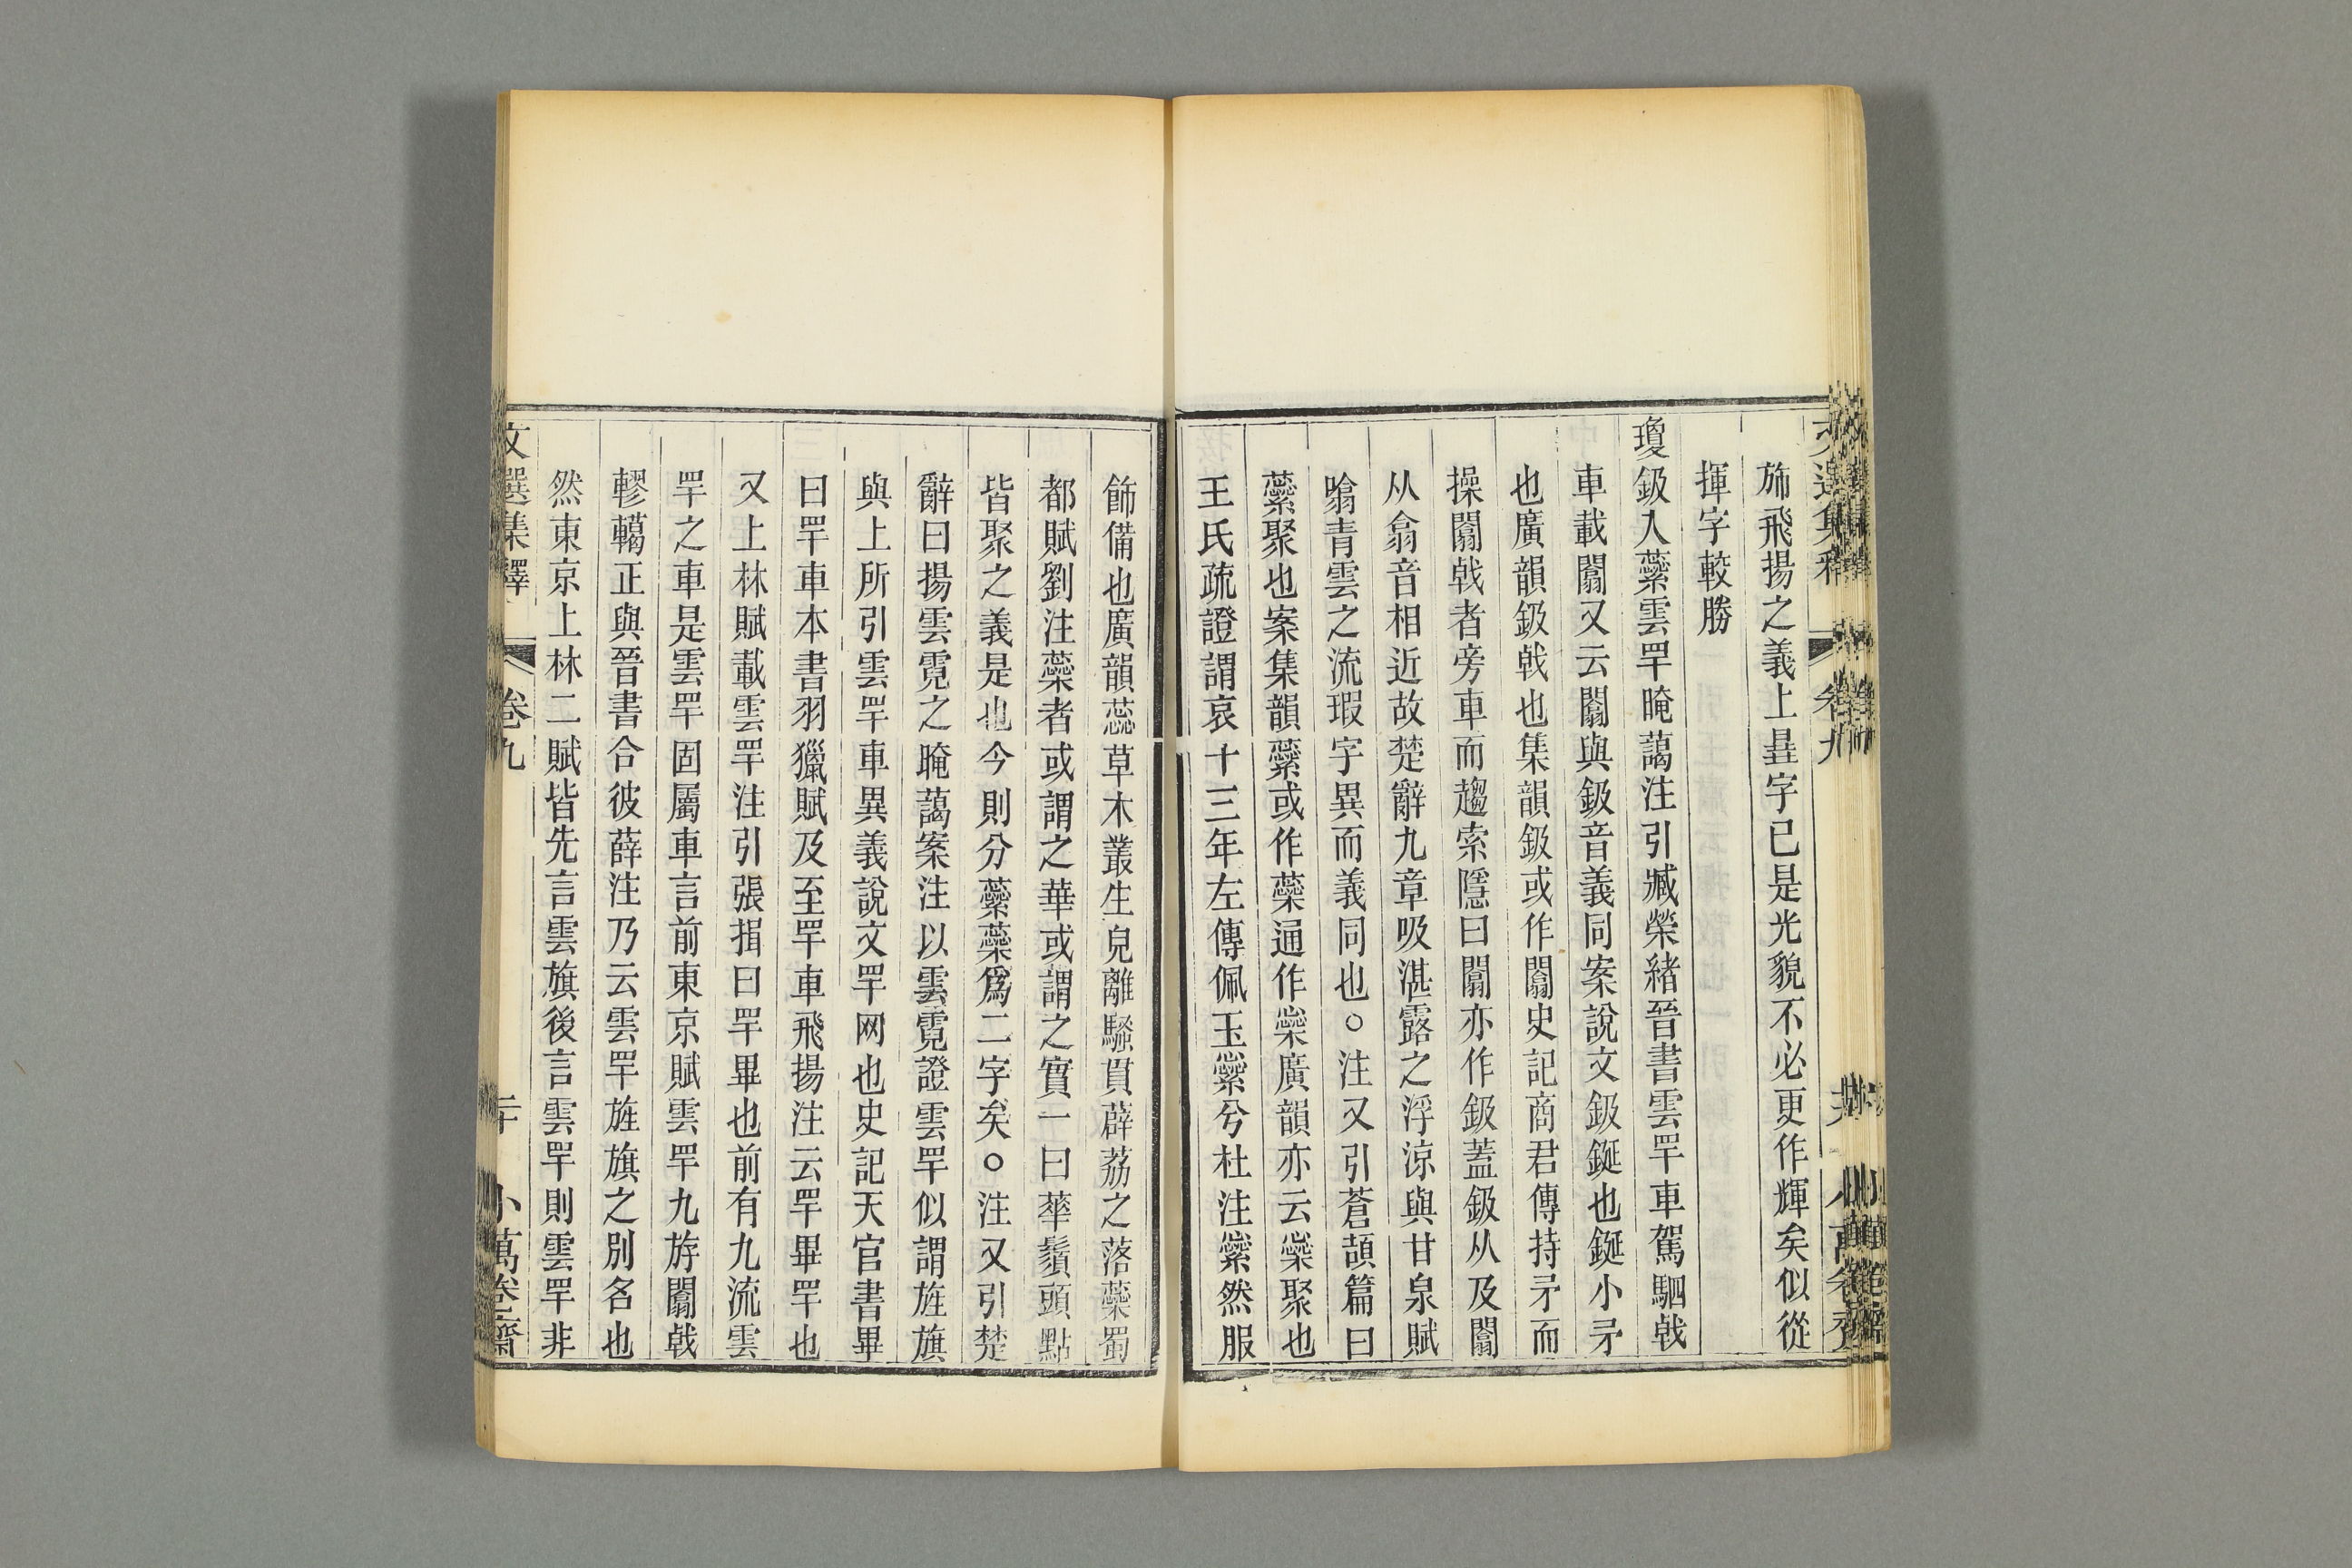 斾飛揚之義上曅字已是光貌不必更作輝矣似從
揮字較勝
瓊鈒入蘂雲䍐晻藹注引臧榮緒晉書雲䍐車駕駟戟
車載闟又云闟與鈒音義同案說文鈒鋋也鋋小矛
也廣韻鈒戟也集韻鈒或作闟史記商君傳持矛而
操闟戟者旁車而趨索隱曰闟亦作鈒蓋鈒从及闟
从翕音相近故楚辭九章吸湛露之浮涼與甘泉賦
噏青雲之流瑕字異而義同也○注又引蒼頡篇曰
蘂聚也案集韻蘂或作蕊通作橤廣韻亦云橤聚也
王氏疏證謂哀十三年左傳佩玉繠兮杜注繠然服
飾備也廣韻蕊草木叢生皃離騷貫薜荔之落蘂蜀
都賦劉注蘂者或謂之華或謂之實一曰華鬚頭點
皆聚之義是也今則分蘂蕊爲二字矣○注又引楚
辭曰揚雲霓之晻藹案注以雲霓證雲䍐似謂旌旗
與上所引雲䍐車異義說文䍐网也史記天官書畢
曰䍐車本書羽獵賦及至䍐車飛揚注云䍐畢䍐也
又上林賦載雲䍐注引張揖曰䍐畢也前有九流雲
䍐之車是雲䍐固屬車言前東京賦雲䍐九斿闟戟
轇轕正與晉書合彼薛注乃云雲䍐旌旗之別名也
然東京上林二賦皆先言雲旗後言雲䍐則雲䍐非
文選集釋 卷九 二十 小萬卷齋